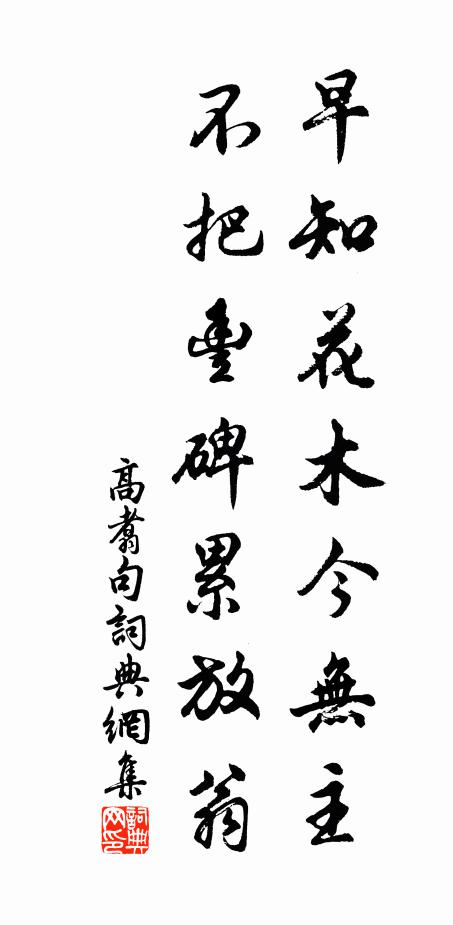 早知花木今無主
不把豐碑累放翁
高翥句詞典網集
詞典网印